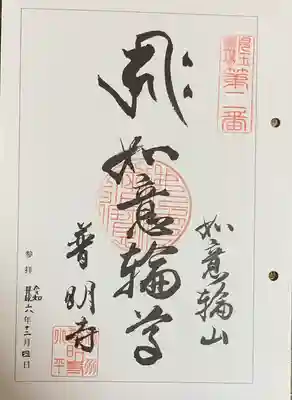 第二番
如意輪山
如意輪尊
普明寺
参拝 令和六年十二月四日